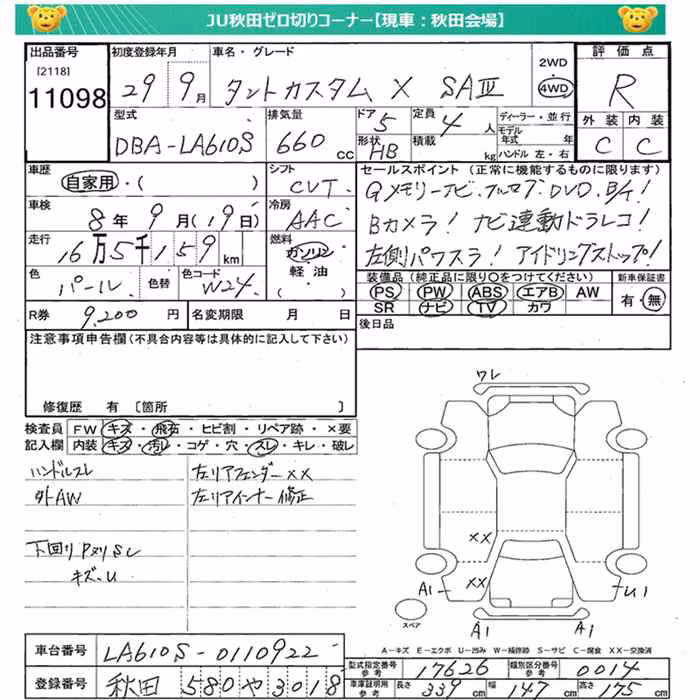 JU秋田ゼロ切りコーナー【現車：秋田会場】
出品番号
[2118]
11098
初度登録年月
29 9月
車名・グレード
タントカスタム X SAⅢ
2WD
4WD
評価点
R
外装 内装
C C
型式
DBA-LA610S
排気量
660 cc
ドア
5
形状
HB
定員
4人
積載
kg
ディーラー・並行
モデル年式 年
ハンドル 左・右
車歴
自家用・( )
シフト
CVT
車検
8年9月(19日)
冷房
AAC
走行
16万5千159km
燃料
ガソリン
軽油
( )
色
パール
色替
色コード
W24
R券 9,200円
名変期限 月 日
セールスポイント (正常に機能するものに限ります)
Gメモリーナビ、フルセグ、DVD、B/t!
Bカメラ! ナビ連動ドラレコ!
左側パワスラ! アイドリングストップ!
装備品(純正品に限り○をつけてください)
PS PW ABS エアB AW
SR ナビ TV カワ
新車保証書
有・無
後日品
注意事項申告欄(不具合内容等は具体的に記入して下さい)
修復歴 有 [箇所 ]
検査員記入欄
FW キズ・飛石・ヒビ割・リペア跡・×要
内装 キズ・汚レ・コゲ・穴・スレ・キレ・破レ
ハンドルスレ
外AW
下回りPヌリSし
キズ、U
左リアフェンダーXX
左リアインナー修正
ワレ
XX
XX
A1
U1
A1
A1
スペア
A-キズ E-エクボ U-凹み W-補修跡 S-サビ C-腐食 XX-交換済
車台番号
LA610S-0110922
登録番号
秋田 580 や 3018
型式指定番号 参考
17626
類別区分番号 参考
0014
車庫証明用 参考
長さ 339cm
幅 147cm
高さ 175cm